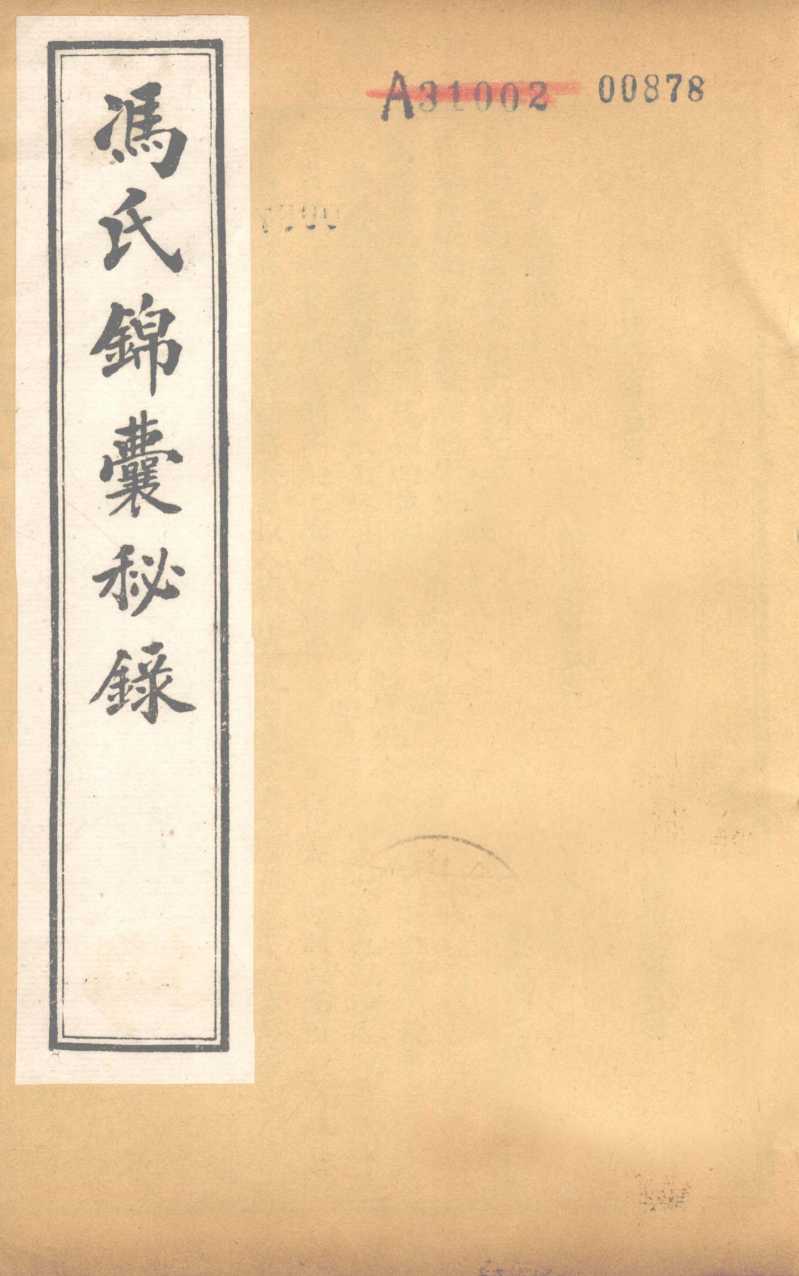 馮氏錦囊秘錄
A31002 00878